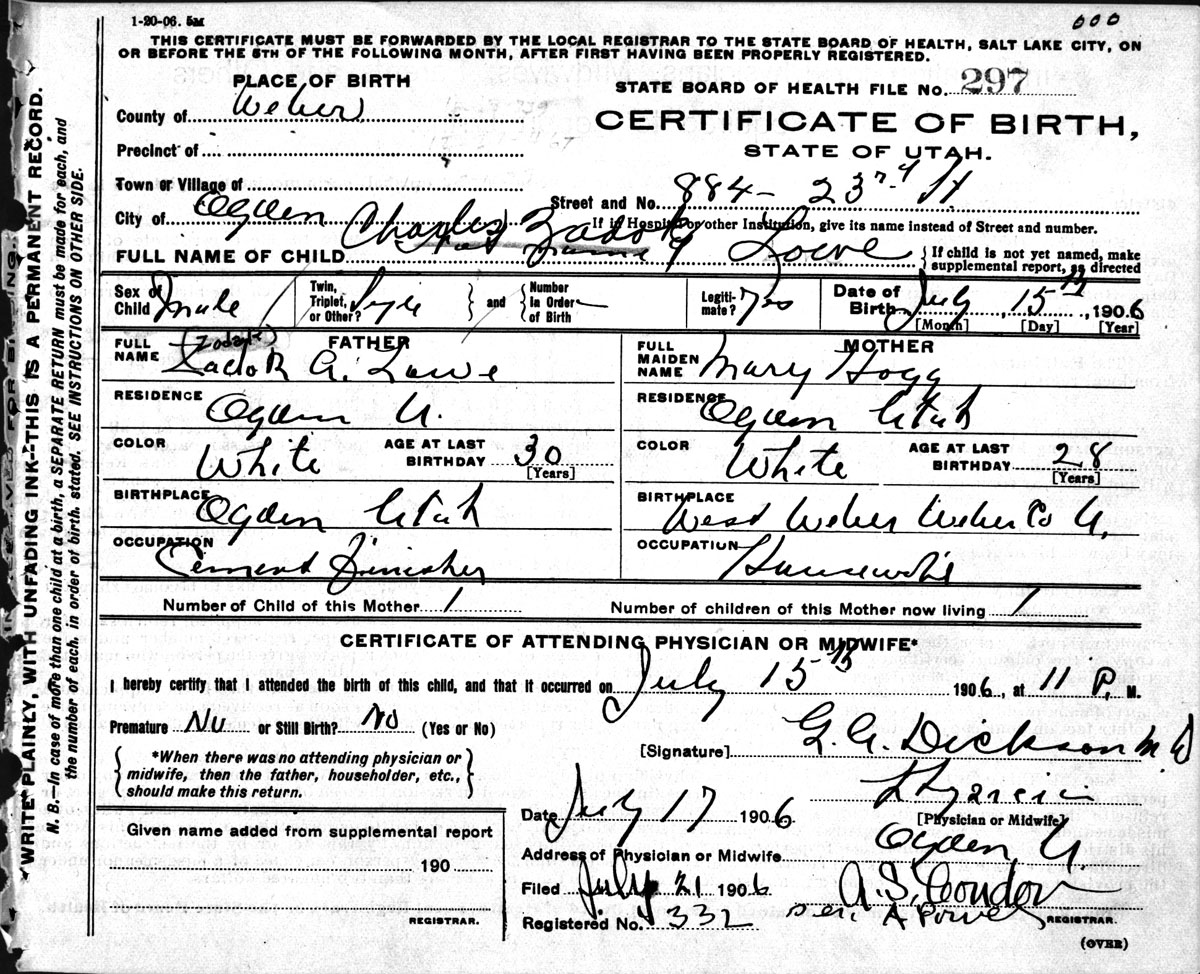 1-20-06. 5M
000
THIS CERTIFICATE MUST BE FORWARDED BY THE LOCAL REGISTRAR TO THE STATE BOARD OF HEALTH, SALT LAKE CITY, ON
OR BEFORE THE 5TH OF THE FOLLOWING MONTH, AFTER FIRST HAVING BEEN PROPERLY REGISTERED.
PLACE OF BIRTH
STATE BOARD OF HEALTH FILE No. 297
County of Weber
CERTIFICATE OF BIRTH,
STATE OF UTAH.
Precinct of
Town or Village of
Street and No. 884 - 23rd St
City of Ogden
If in Hospital or other Institution, give its name instead of Street and number.
FULL NAME OF CHILD Charles Zadok Lowe
If child is not yet named, make supplemental report, as directed
Sex of Child Male
Twin, Triplet, or Other?
and Number in Order of Birth
Legitimate? Yes
Date of Birth July 15th, 1906
[Month] [Day] [Year]
FATHER
FULL NAME Zadok A. Lowe
RESIDENCE Ogden U.
COLOR White
AGE AT LAST BIRTHDAY 30 [Years]
BIRTHPLACE Ogden Utah
OCCUPATION Cement Finisher
MOTHER
FULL MAIDEN NAME Mary Hogg
RESIDENCE Ogden Utah
COLOR White
AGE AT LAST BIRTHDAY 28 [Years]
BIRTHPLACE West Weber Weber Co U.
OCCUPATION Housewife
Number of Child of this Mother 1
Number of children of this Mother now living 1
CERTIFICATE OF ATTENDING PHYSICIAN OR MIDWIFE*
I hereby certify that I attended the birth of this child, and that it occurred on July 15th 1906, at 11 P. M.
Premature No or Still Birth? No (Yes or No)
[Signature] G. A. Dickson M D
*When there was no attending physician or
midwife, then the father, householder, etc.,
should make this return.
Physician
[Physician or Midwife]
Date July 17 1906.
Given name added from supplemental report
190
REGISTRAR.
Address of Physician or Midwife Ogden, U.
Filed July 21 1906
A. S. Condon
Registered No. 332
REGISTRAR.
(OVER)
*WRITE PLAINLY, WITH UNFADING INK--THIS IS A PERMANENT RECORD.
N. B.—In case of more than one child at a birth, a SEPARATE RETURN must be made for each, and
the number of each, in order of birth, stated. SEE INSTRUCTIONS ON OTHER SIDE.